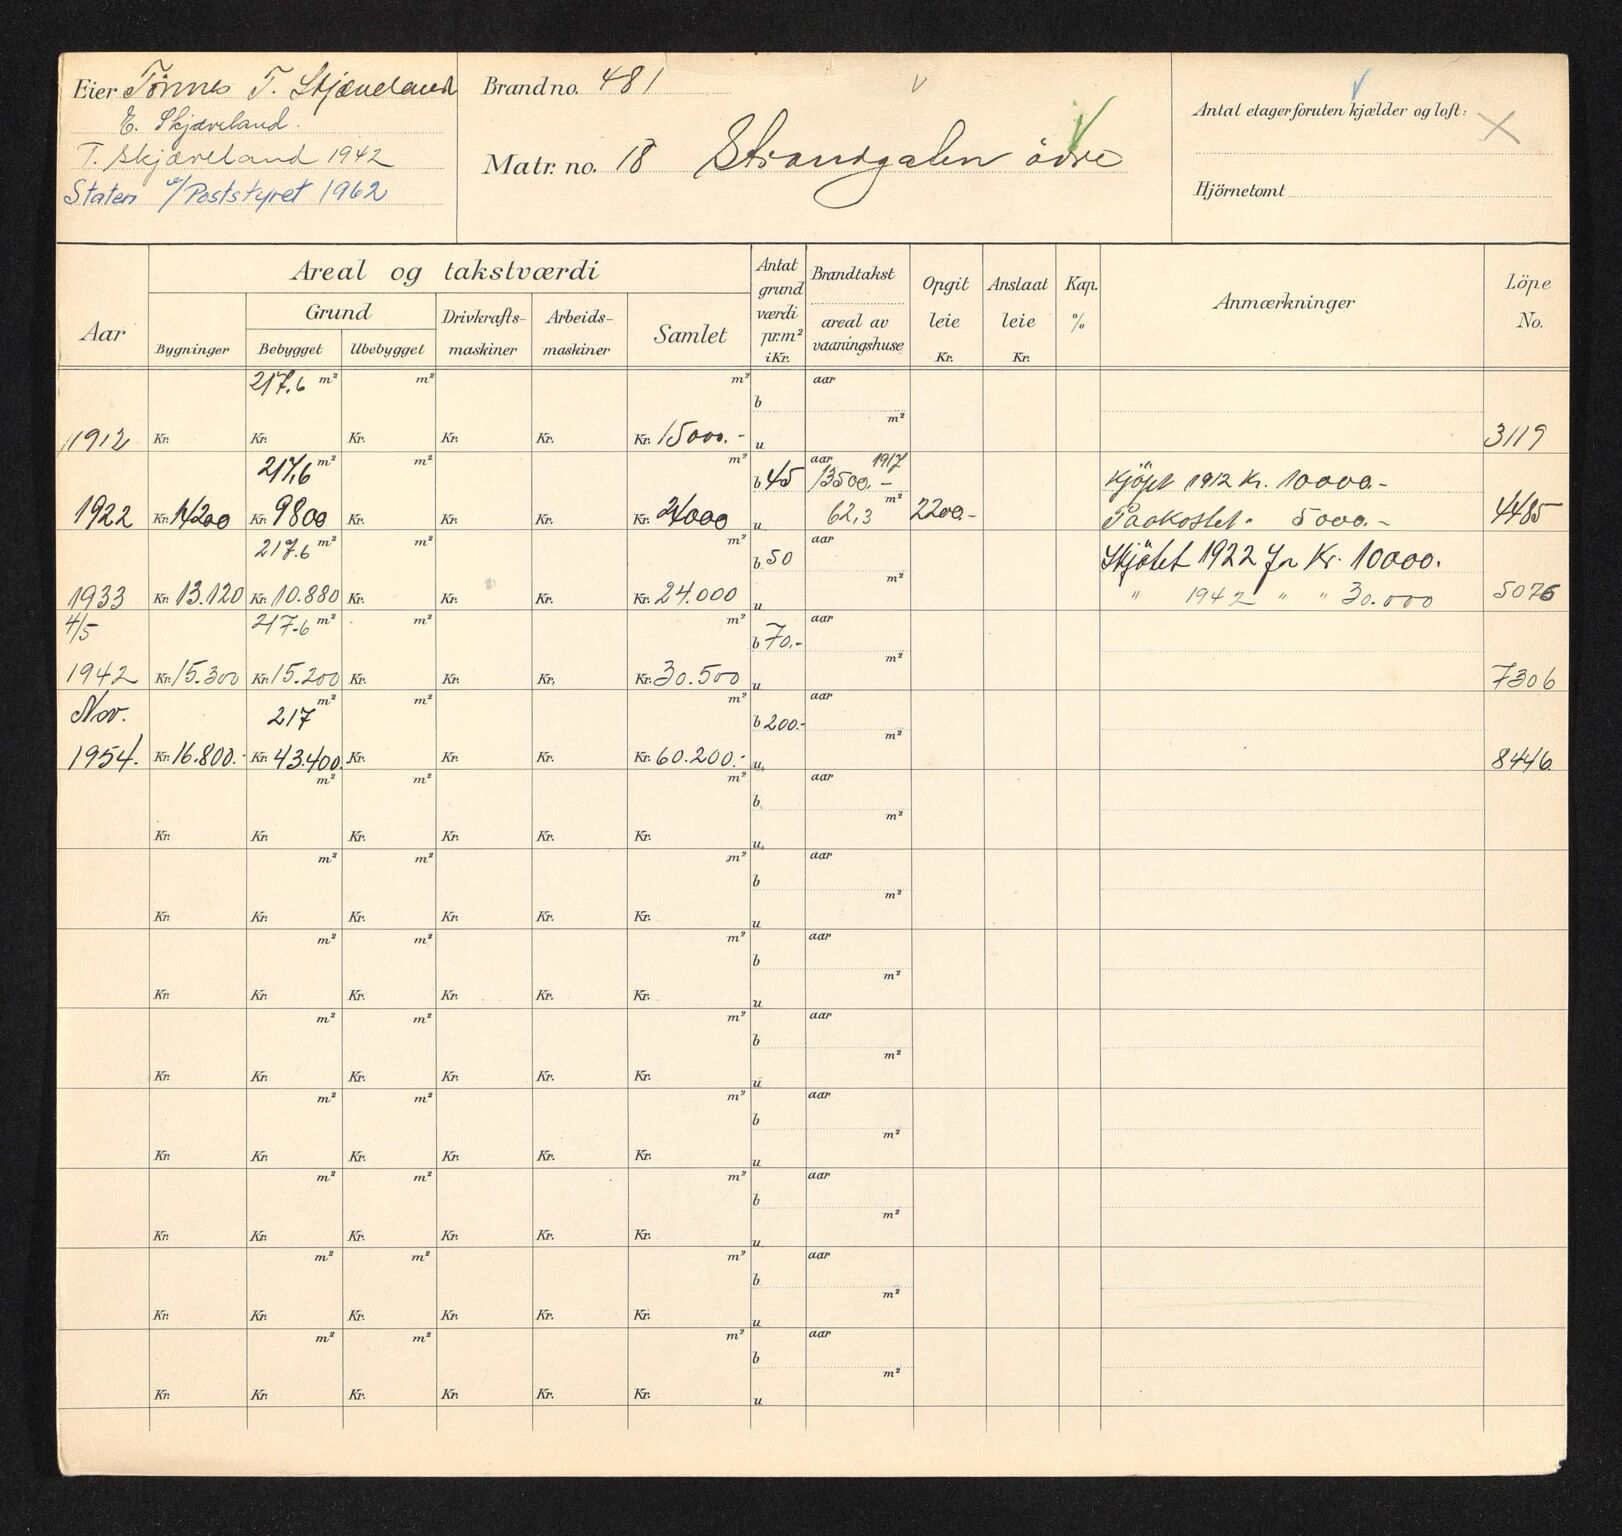 Eier Tönnes T. Skjæveland
E. Skjæveland.
T. Skjæveland 1942
Staten v/Poststyret 1962
Brand no. 481
Matr. no. 18 Strandgaten övre
Antal etager foruten kjælder og loft:
Hjörnetomt
Aar
Areal og takstværdi
Bygninger
Grund
Bebygget
Ubebygget
Drivkrafts-maskiner
Arbeids-maskiner
Samlet
Antat grund værdi pr. m² i Kr.
Brandtakst
areal av vaaningshuse
Opgit leie Kr.
Anslaat leie Kr.
Kap. %
Anmærkninger
Löpe No.
217.6 m² m² m² aar
b
m²
1912 Kr. Kr. Kr. Kr. Kr. Kr. 15000.- u 3119
217,6 m² m² m² b 45 aar 1917 13500.- Kjöpt 1912 Kr. 10000.-
1922 Kr. 14200 Kr. 9800 Kr. Kr. Kr. Kr. 24000 u 62,3 m² 2200.- Paakostet " 5000.- 4485
217.6 m² m² m² b 50 aar Skjötet 1922 for Kr. 10000.
1933 Kr. 13.120 Kr. 10.880 Kr. Kr. Kr. Kr. 24.000 u m² " 1942 " " 30.000 5076
4/5 217.6 m² m² m² b 70.- aar
1942 Kr. 15.300 Kr. 15.200 Kr. Kr. Kr. Kr. 30.500 u m² 7306
Nov. 217 m² m² m² b 200.- aar
1954. Kr. 16.800.- Kr. 43.400. Kr. Kr. Kr. Kr. 60.200.- u m² 8446
m² m² m² aar
b
m²
Kr. Kr. Kr. Kr. Kr. Kr. u
m² m² m² aar
b
m²
Kr. Kr. Kr. Kr. Kr. Kr. u
m² m² m² aar
b
m²
Kr. Kr. Kr. Kr. Kr. Kr. u
m² m² m² aar
b
m²
Kr. Kr. Kr. Kr. Kr. Kr. u
m² m² m² aar
b
m²
Kr. Kr. Kr. Kr. Kr. Kr. u
m² m² m² aar
b
m²
Kr. Kr. Kr. Kr. Kr. Kr. u
m² m² m² aar
b
m²
Kr. Kr. Kr. Kr. Kr. Kr. u
m² m² m² aar
b
m²
Kr. Kr. Kr. Kr. Kr. Kr. u